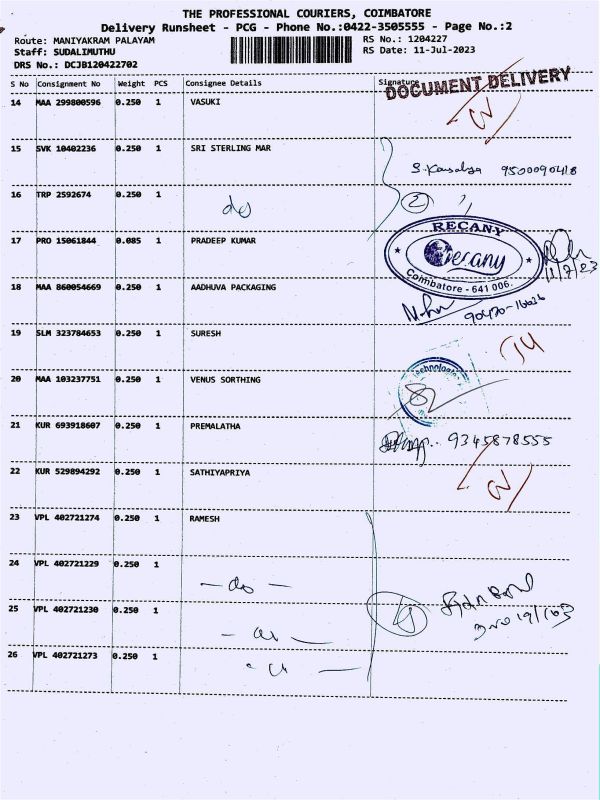 THE PROFESSIONAL COURIERS, COIMBATORE
Delivery Runsheet - PCG - Phone No.:0422-3505555 - Page No.:2
Route: MANIYAKRAM PALAYAM RS No.: 1204227
Staff: SUDALIMUTHU RS Date: 11-Jul-2023
DRS No.: DCJB120422702
S No Consignment No Weight PCS Consignee Details Signature
DOCUMENT DELIVERY
14 MAA 299800596 0.250 1 VASUKI
15 SVK 10402236 0.250 1 SRI STERLING MAR
9500090418
16 TRP 2592674 0.250 1 do 2
RECANY
17 PRO 15061844 0.085 1 PRADEEP KUMAR
Recany
11/7/23
Coimbatore - 641 006.
18 MAA 860054669 0.250 1 AADHUVA PACKAGING
19 SLM 323784653 0.250 1 SURESH
20 MAA 103237751 0.250 1 VENUS SORTHING
21 KUR 693918607 0.250 1 PREMALATHA
9345878555
22 KUR 529894292 0.250 1 SATHIYAPRIYA
23 VPL 402721274 0.250 1 RAMESH
24 VPL 402721229 0.250 1
- do -
25 VPL 402721230 0.250 1
26 VPL 402721273 0.250 1